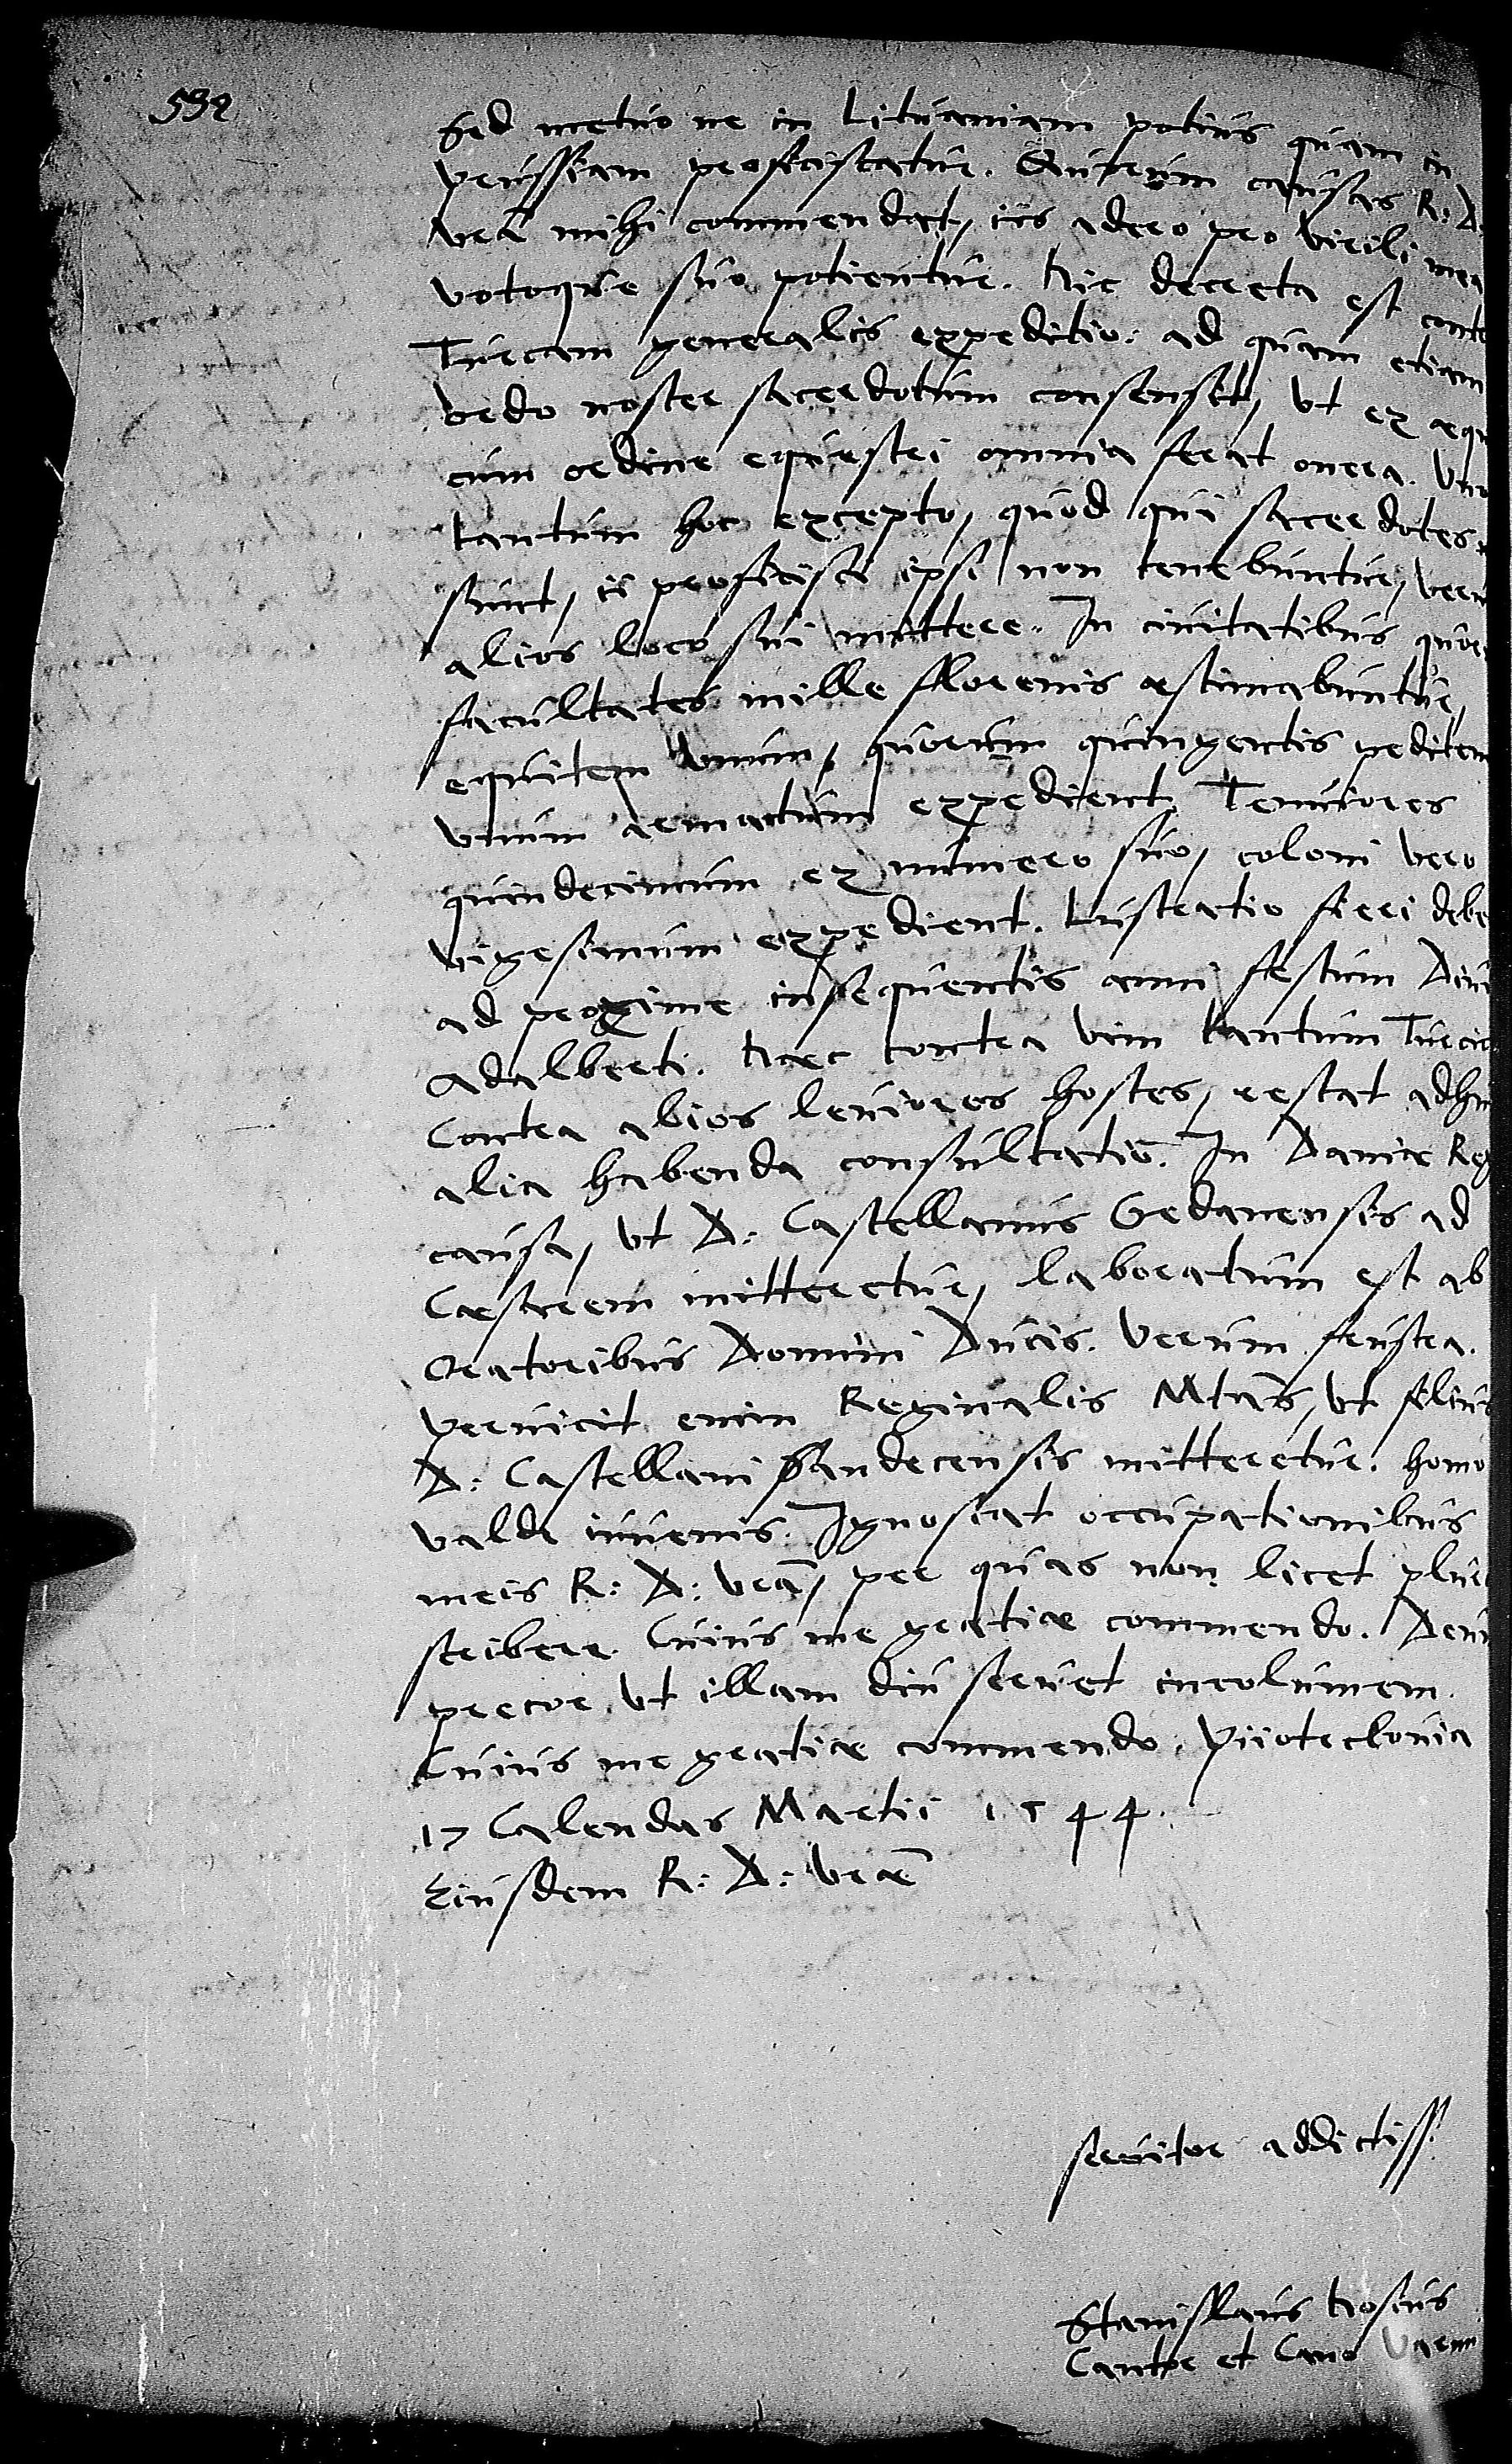 592
Sed metuo ne in Lituaniam potius quam in
Prussiam proficiscatur. Quarum causas R: D:
vra mihi commendat, iis adero pro virili mea
votoque suo potientur. Hic decreta est contr
Turcam generalis expeditio: ad quam etiam
ordo noster sacerdotum consensit, ut ex aequ
cum ordine equestri omnia ferat onera. Uno
tantum hoc excepto, quod qui sacerdotes
sunt, ii proficisci ipsi non tenebuntur, veru
alios loco sui mittere. In civitatibus quor
facultates mille florenis aestimabuntur,
equitem unum, quorum quingentis peditem
unum armatum expedient. Tenuiores
quindecimum ex numero suo, coloni vero
vigesimum expedient. Lustratio fieri debe
ad proxime insequentis anni festum Divi
Adalberti. Haec contra vim tantum Turcic
Contra alios leviores hostes, restat adhu
alia habenda consultatio. In Daniae Reg
causa, ut D: Castellanus Gedanensis ad
Caesarem mitteretur, laboratum est ab
Oratoribus Domini Ducis. Verum frustra.
Pervicit enim Reginalis Mtas, ut filius
D: Castellani Sandecensis mitteretur: homo
valde iuvenis. Ignoscat occupationibus
meis R: D: vra, per quas non licet plur
scribere. Cuius me gratiae commendo. Deum
precor, ut illam diu servet incolumem.
Cuius me gratiae commendo. Piiotrcovia
17 Calendas Martii 1544.
Eiusdem R: D: vrae
servitor addictiss.
Stanislaus Hosius
Cantor et Cano Varm